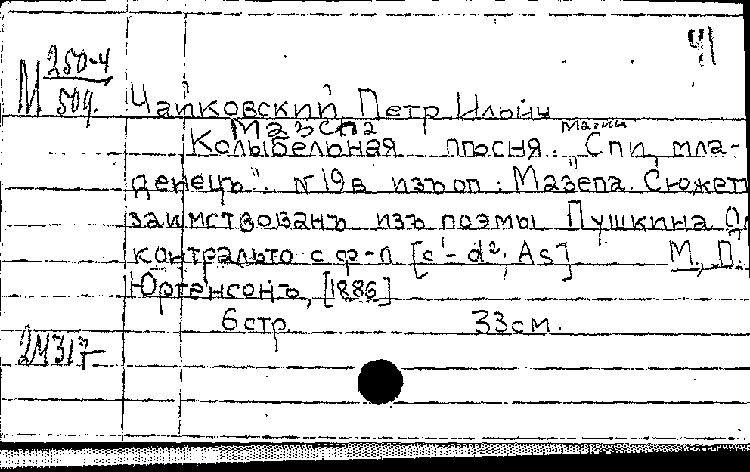 41
М 250-4
504.
Чайковский Петр Ильич
Мазепа
Колыбельная песня. "Спи, мла-
денецъ". N 19в изъ оп: Мазепа. Сюжет
заимствованъ изъ поэмы Пушкина
контральто с ф-п [c'- d²; As] М., П.
Юргенсонъ, [1886]
6 стр. 33 см.